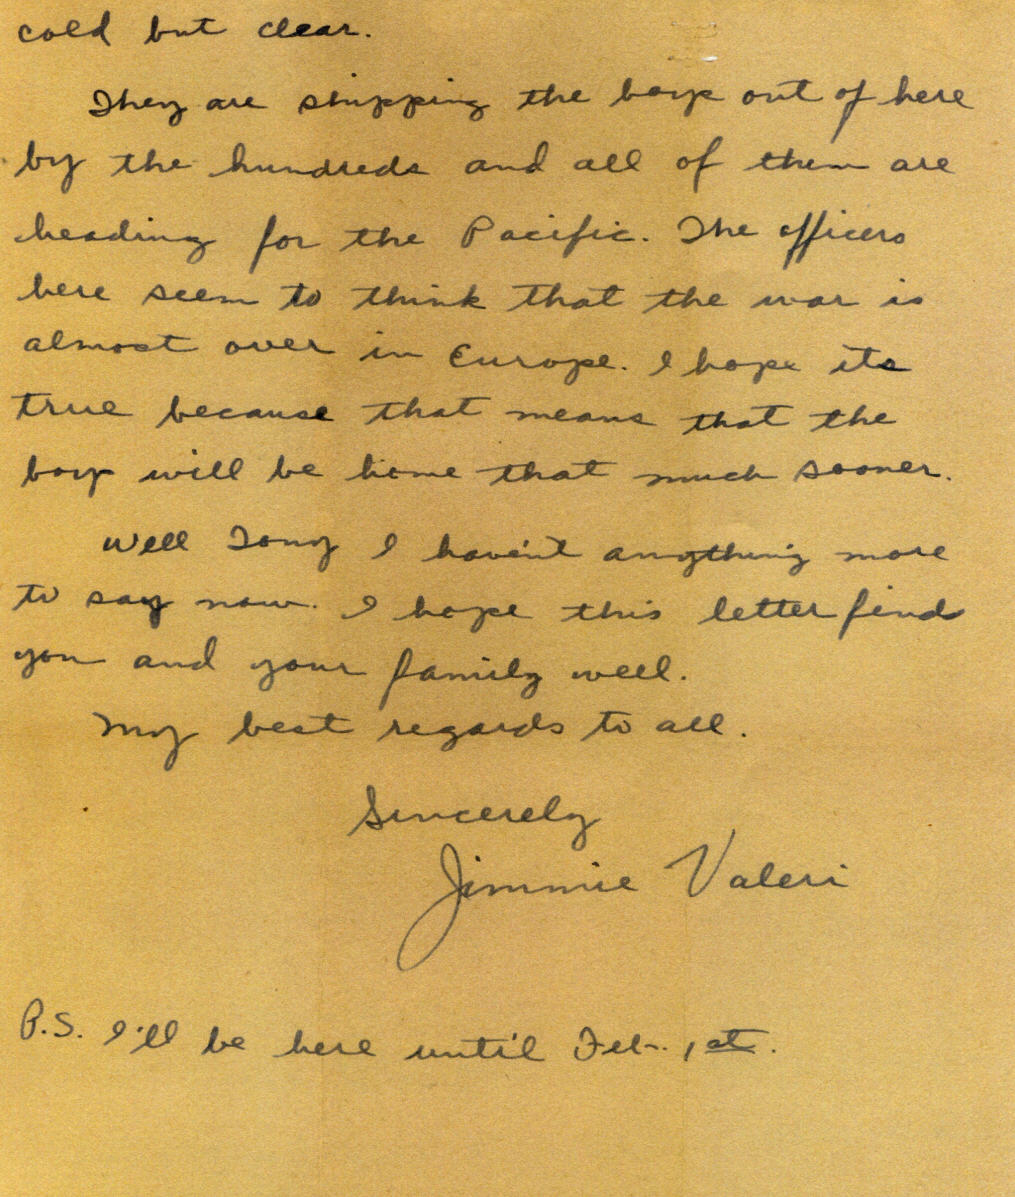 cold but clear.
They are shipping the boys out of here
by the hundreds and all of them are
heading for the Pacific. The officers
here seem to think that the war is
almost over in Europe. I hope its
true because that means that the
boys will be home that much sooner.
Well Tony I haven't anything more
to say now. I hope this letter finds
you and your family well.
My best regards to all.
Sincerely
Jimmie Valeri
P.S. I'll be here until Feb. 1st.